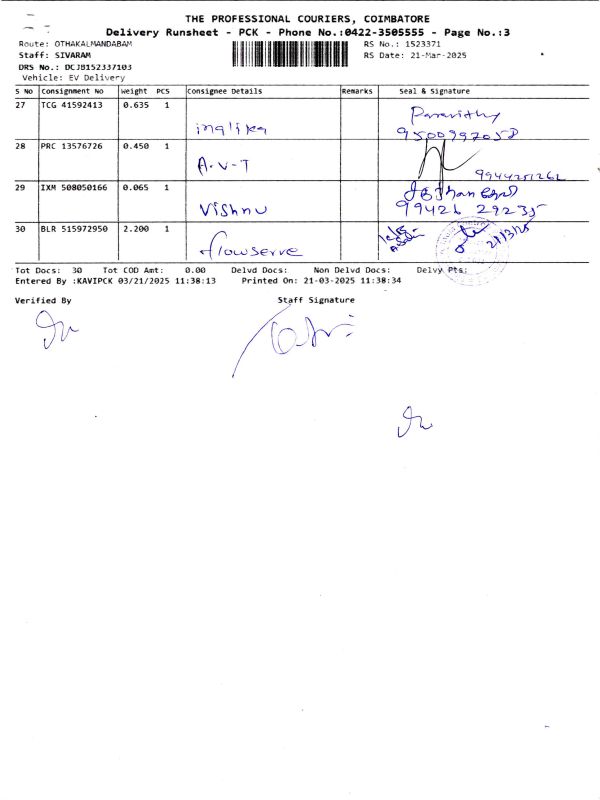 THE PROFESSIONAL COURIERS, COIMBATORE
Delivery Runsheet - PCK - Phone No.:0422-3505555 - Page No.:3
Route: OTHAKALMANDABAM RS No.: 1523371
Staff: SIVARAM RS Date: 21-Mar-2025
DRS No.: DCJB152337103
Vehicle: EV Delivery
S No Consignment No Weight PCS Consignee Details Remarks Seal & Signature
27 TCG 41592413 0.635 1
inglika 9500997058
28 PRC 13576726 0.450 1
A-V-T 9944251262
29 IXM 508050166 0.065 1
Vishnu 99426 29235
30 BLR 515972950 2.200 1
flowserve 21/3/25
Tot Docs: 30 Tot COD Amt: 0.00 Delvd Docs: Non Delvd Docs: Delvy Pts:
Entered By :KAVIPCK 03/21/2025 11:38:13 Printed On: 21-03-2025 11:38:34
Verified By Staff Signature